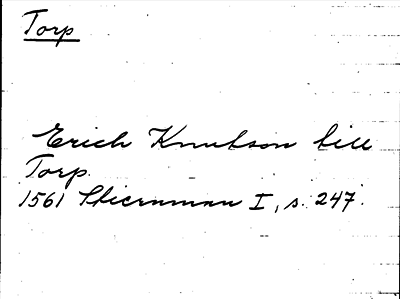 Torp
Erich Knutson till
Torp.
1561 Stiernman I, s. 247.